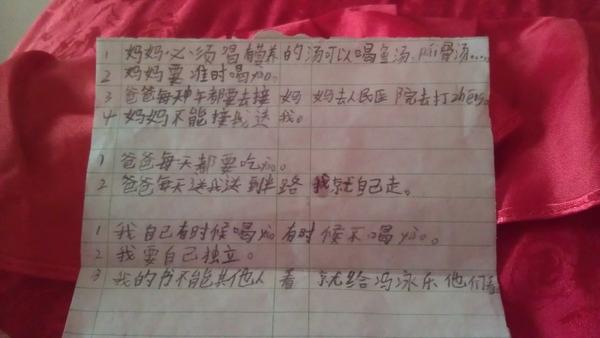 1 妈妈必须喝有营养的汤可以喝鱼汤、排骨汤……
2 妈妈要准时喝yao。
3 爸爸每天中午都要去接妈妈去人民医院去打zhen。
4 妈妈不能接我送我。
1 爸爸每天都要吃yao。
2 爸爸每天送我送到半路我就自己走。
1 我自己有时候喝yao有时候不喝yao。
2 我要自己独立。
3 我的书不能其他人看就给冯泳乐他们看